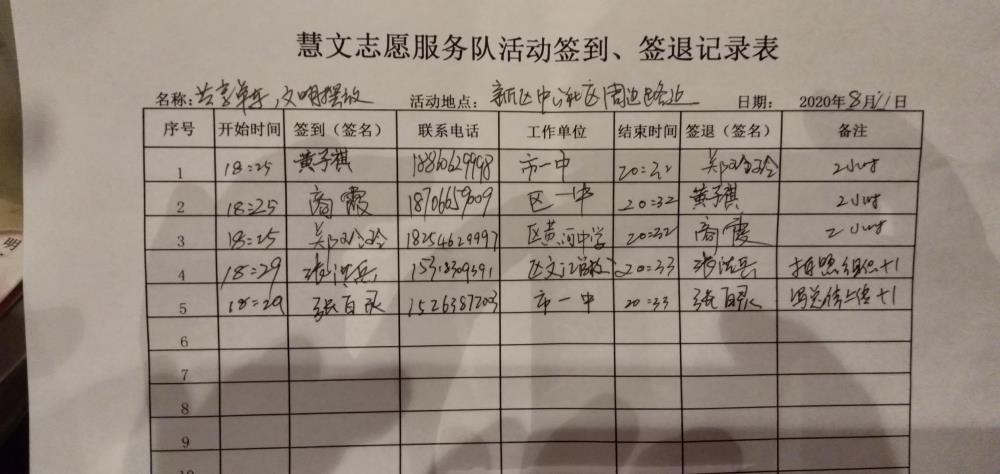 慧文志愿服务队活动签到、签退记录表
名称：共享单车，文明摆放 活动地点：新区中心社区周边路边 日期： 2020年8月11日
序号 开始时间 签到（签名） 联系电话 工作单位 结束时间 签退（签名） 备注
1 18:25 黄子祺 18860629998 市一中 20:32 2小时
2 18:25 商霞 18706659009 区一中 20:32 黄子祺 2小时
3 18:25 18254629997 区黄河中学 20:32 商霞 2小时
4 18:29 20:33 拍照组织+1
5 18:29 张百灵 1526387203 市一中 20:33 张百灵 +1
6
7
8
9
10
明